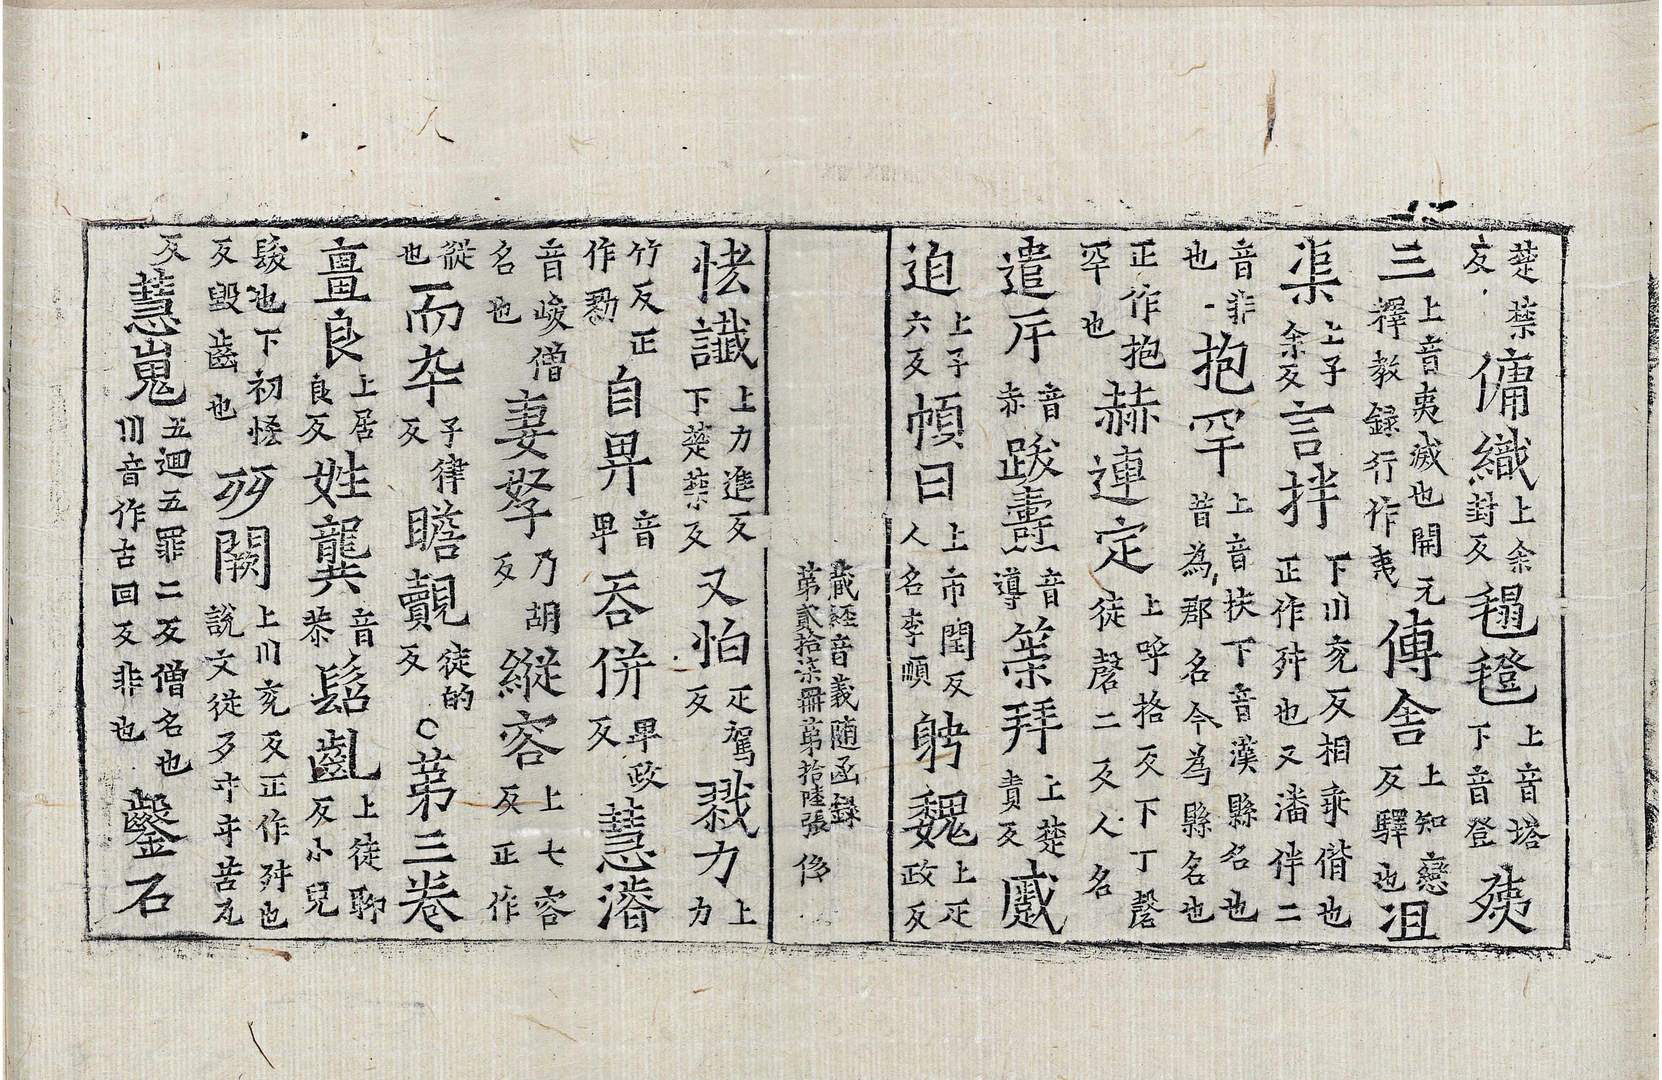 楚禁反傭織上余封反毾㲪上音塔下音登𣧑
三上音夷滅也開元釋教録行作夷傳舍上知戀反驛也沮
渠上子余反言拌下川兖反相乖偝也正作舛也又潘伴二
音非也抱罕上音扶下音漢縣名也昔為郡名今為縣名也
正作抱罕也赫連定上呼格反下丁磬徒磬二反人名
遣斥音赤跋燾音導策拜上楚責反蹙
迫上子六反幀曰上市閏反人名李順躬魏上疋政反
藏經音義随函録
第貳拾柒冊第拾陸張 侈
恡讖上力進反下楚禁反又怕疋駕反戮力上力
竹反正作勠自畀音畁吞併畢政反慧濬
音峻僧名也妻孥乃胡反縱容上七容反正作
從也而卒子律反瞻覿徒的反○第三卷
畺良上居良反姓龔音恭髫齓上徒聊反小兒
髮也下初恡反毀齒也歹闕上川兖反正作舛也說文從歹㐄㐄苦瓦
反慧嵬五迴五罪二反僧名也川音作古回反非也鑿石